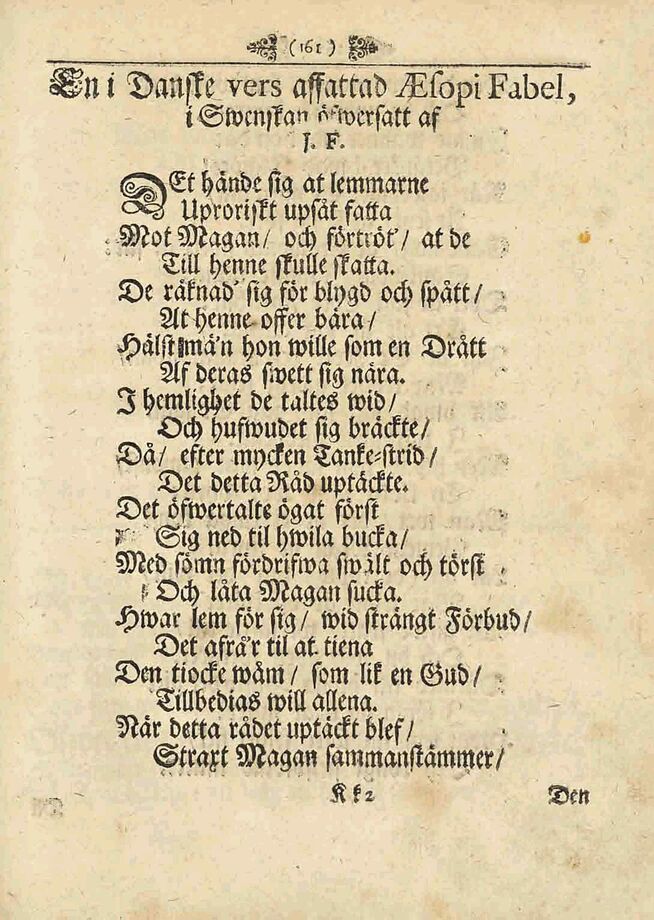 (161)
En i Danske vers affattad Æsopi Fabel,
i Swenskan öfwersatt af
J. F.
DEt hände sig at lemmarne
Uproriskt upsåt fatta
Mot Magan/ och förtröt'/ at de
Till henne skulle skatta.
De räknad' sig för blygd och spått/
At henne offer bära/
Hälst mä'n hon wille som en Drått
Af deras swett sig nära.
I hemlighet de taltes wid/
Och hufwudet sig bräckte/
Då/ efter mycken Tanke-strid/
Det detta Råd uptäckte.
Det öfwertalte ögat först
Sig ned til hwila bucka/
Med sömn fördrifwa swält och törst
Och låta Magan sucka.
Hwar lem för sig/ wid strängt Förbud/
Det afrå'r til at tiena
Den tiocke wåm/ som lik en Gud/
Tillbedias will allena.
När detta rådet uptäckt blef/
Straxt Magan sammanstämmer/
Kk2
Den